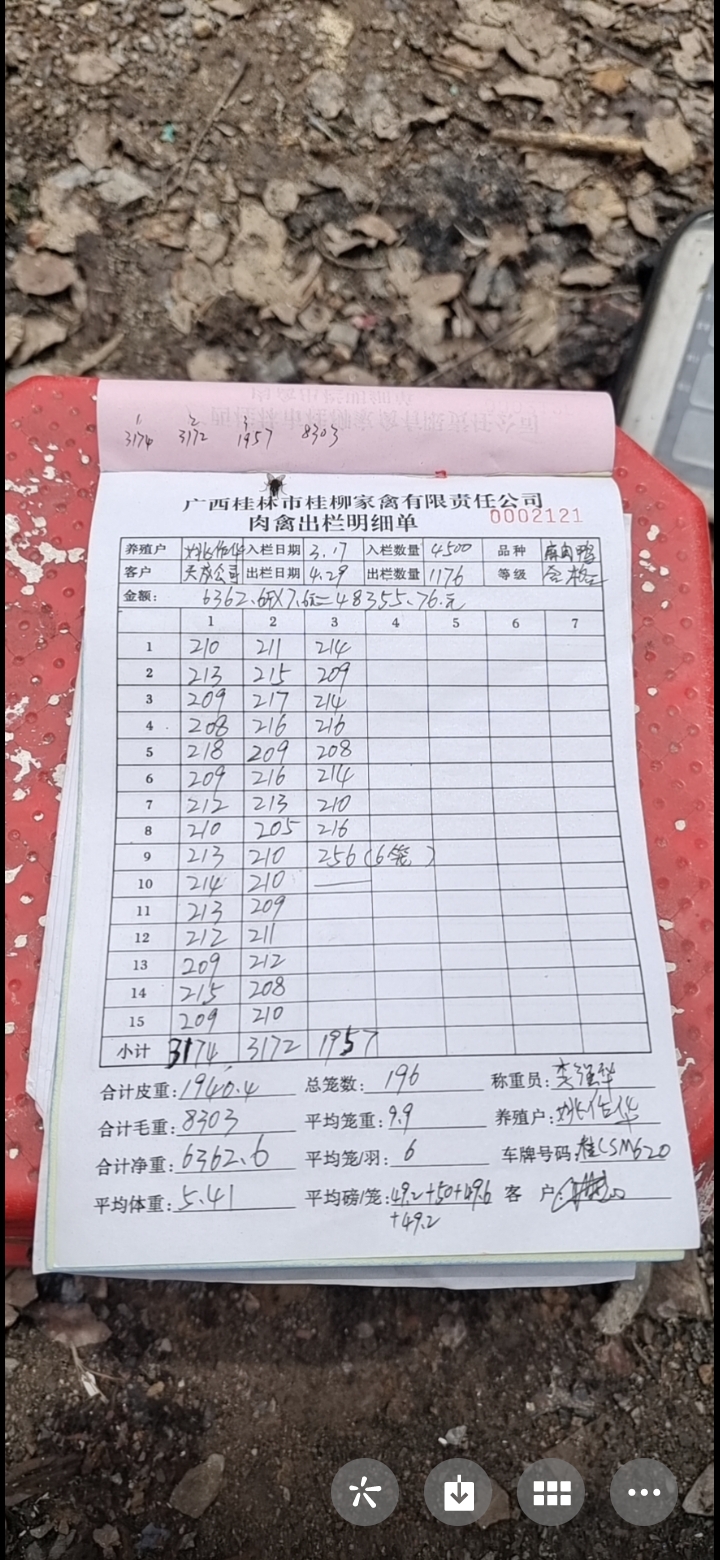 1 2 3
3174 3172 1957 8303
广西桂林市桂柳家禽有限责任公司
肉禽出栏明细单 0002121
养殖户 姚佐华 入栏日期 3.17 入栏数量 4500 品种 麻肉鸭
客户 天成公司 出栏日期 4.29 出栏数量 1176 等级 合格
金额: 6362.6斤X7.6元=48355.76.元
1 2 3 4 5 6 7
1 210 211 214
2 213 215 209
3 209 217 214
4 208 216 216
5 218 209 208
6 209 216 214
7 212 213 210
8 210 205 216
9 213 210 256(6笼)
10 214 210
11 213 209
12 212 211
13 209 212
14 215 208
15 209 210
小计 3174 3172 1957
合计皮重: 1940.4 总笼数: 196 称重员:
合计毛重: 8303 平均笼重: 9.9 养殖户: 姚佐华
合计净重: 6362.6 平均笼/羽: 6 车牌号码: 桂CSM620
平均体重: 5.41 平均磅/笼: 49.2+50+49.6 客 户:
+49.2